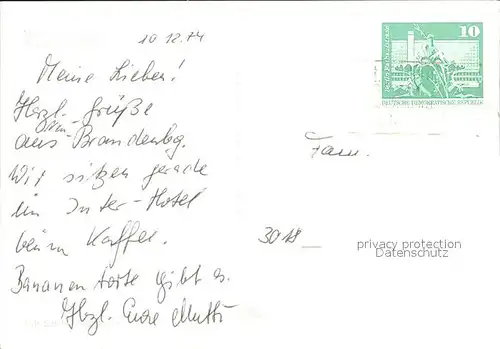 10.12.74
Meine Lieben!
Herzl. Grüße
aus Brandenbg.
Wir sitzen gerade
im Inter-Hotel
beim Kaffee.
Bananentorte gibt es.
Herzl. Eure Mutti
10
DEUTSCHE DEMOKRATISCHE REPUBLIK
Fam.
3018
privacy protection
Datenschutz